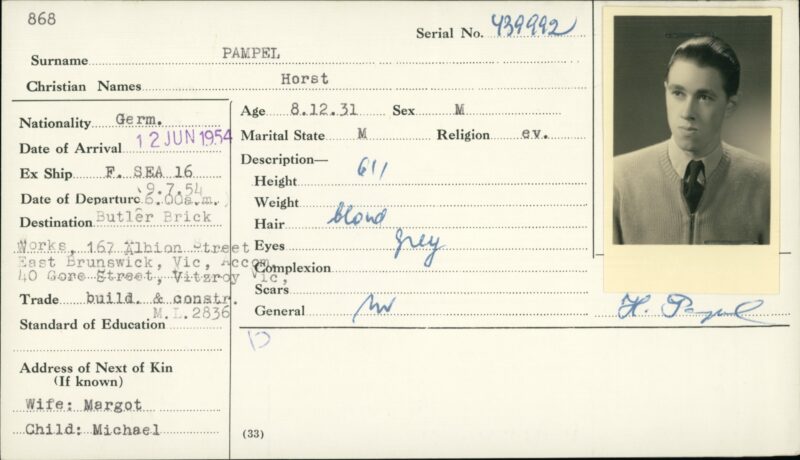 868
Serial No. 439992
Surname PAMPEL
Christian Names Horst
Nationality Germ.
Date of Arrival 12 JUN 1954
Ex Ship F. SEA 16
Date of Departure 9.7.54
6.00a.m.)
Destination Butler Brick
Works, 167 Albion Street
East Brunswick, Vic, Accom.
40 Gore Street, Vitzroy Vic,
Trade build. & constr.
M.L.2836
Standard of Education
Address of Next of Kin
(If known)
Wife: Margot
Child: Michael
Age 8.12.31 Sex M
Marital State M Religion ev.
Description—
Height 6'1
Weight
Hair blond
Eyes grey
Complexion
Scars
General
H. Pampel
(33)